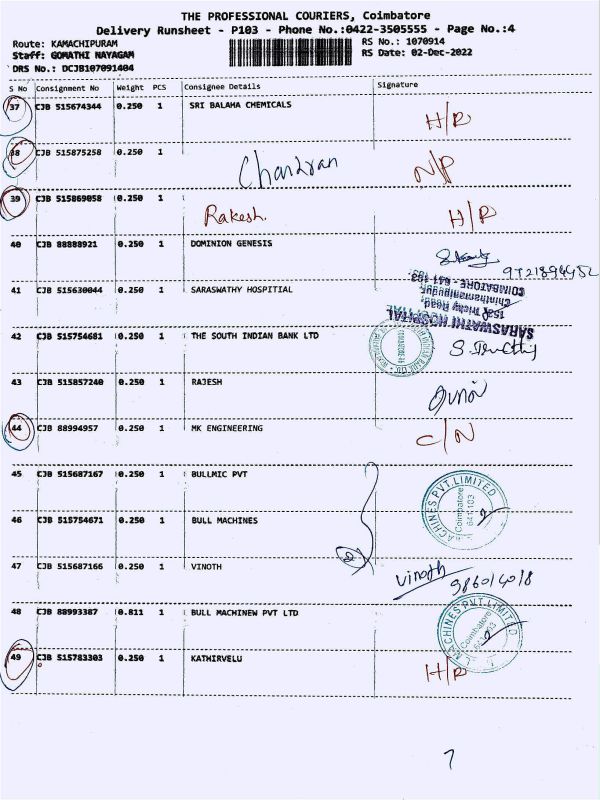 THE PROFESSIONAL COURIERS, Coimbatore
Delivery Runsheet - P103 - Phone No.:0422-3505555 - Page No.:4
Route: KAMACHIPURAM RS No.: 1070914
Staff: GOMATHI NAYAGAM RS Date: 02-Dec-2022
DRS No.: DCJB107091404
S No Consignment No Weight PCS Consignee Details Signature
37 CJB 515674344 0.250 1 SRI BALAHA CHEMICALS H/R
38 CJB 515875258 0.250 1 Chandran N/P
39 CJB 515869058 0.250 1 Rakesh. H/R
40 CJB 88888921 0.250 1 DOMINION GENESIS
41 CJB 515630044 0.250 1 SARASWATHY HOSPITIAL
SARASWATHI HOSPITAL
Trichy Road,
Chinthamanipudur,
COIMBATORE - 641 103
42 CJB 515754681 0.250 1 THE SOUTH INDIAN BANK LTD
43 CJB 515857240 0.250 1 RAJESH
44 CJB 88994957 0.250 1 MK ENGINEERING C/N
45 CJB 515687167 0.250 1 BULLMIC PVT
46 CJB 515754671 0.250 1 BULL MACHINES
MACHINES PVT.LIMITED
Coimbatore
641 103
47 CJB 515687166 0.250 1 VINOTH Vinoth
48 CJB 88993387 0.811 1 BULL MACHINEW PVT LTD
MACHINES PVT.LIMITED
Coimbatore
641 103
49 CJB 515783303 0.250 1 KATHIRVELU H/R
7